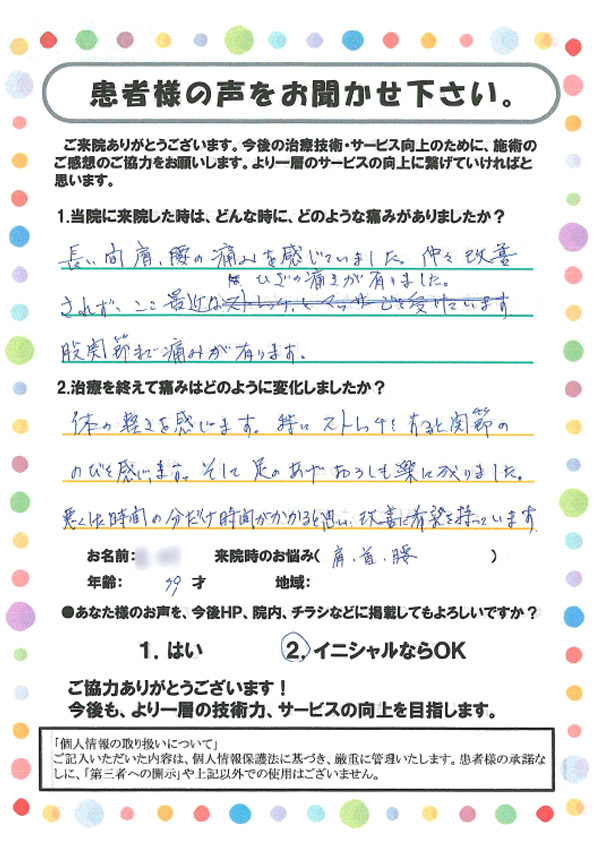 患者様の声をお聞かせ下さい。
ご来院ありがとうございます。今後の治療技術・サービス向上のために、施術の
ご感想のご協力をお願いします。より一層のサービスの向上に繋げていければと
思います。
1.当院に来院した時は、どんな時に、どのような痛みがありましたか？
長い間肩、腰の痛みを感じていました。仲々改善
ひざの痛さが有りました。
されず、ここ最近はストレッチとマッサージを受けています
股関節まで痛みが有ります。
2.治療を終えて痛みはどのように変化しましたか？
体の軽さを感じます。特にストレッチをすると関節の
のびを感じます。そして足のあげおろしも楽になりました。
悪くした時間の分だけ時間がかかると思い、改善に希望を持っています
お名前： 来院時のお悩み( 肩、首、腰 )
年齢： 79 才 地域：
●あなた様のお声を、今後HP、院内、チラシなどに掲載してもよろしいですか？
1. はい 2. イニシャルならOK
ご協力ありがとうございます！
今後も、より一層の技術力、サービスの向上を目指します。
「個人情報の取り扱いについて」
ご記入いただいた内容は、個人情報保護法に基づき、厳重に管理いたします。患者様の承諾な
しに、「第三者への開示」や上記以外での使用はございません。